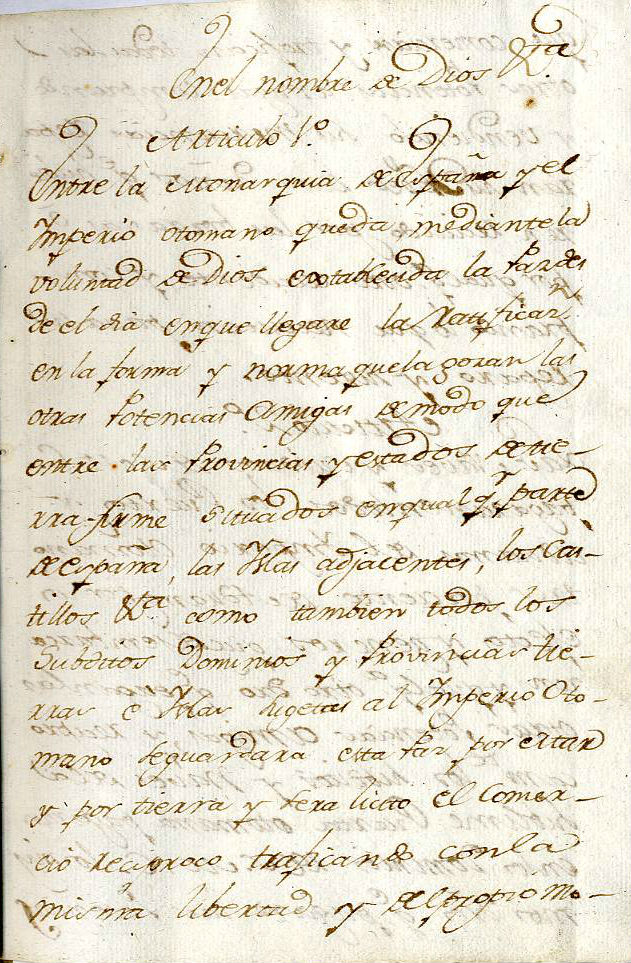 En el nombre de Dios &.ta
Articulo 1.º
Entre la Monarquia de españa y el
Imperio otomano queda mediante la
voluntad de Dios extablecida la Paz des
de el dia en que llegare la Ratificaz.n
en la forma y norma que la gozan las
otras Potencias Amigas de modo que
entre las Provincias y estados de tie-
rra firme situados en qualq.r parte
de españa, las Yslas adjacentes, los Cas-
tillos &.ta como tambien todos, los
Subditos Dominios y Provincias tie-
rras e Yslas sugetas al Imperio Oto-
mano se guardara esta Paz por el mar
y por tierra y sera licito el Comer-
cio reciproco traficando con la
misma libertad y del propio mo-